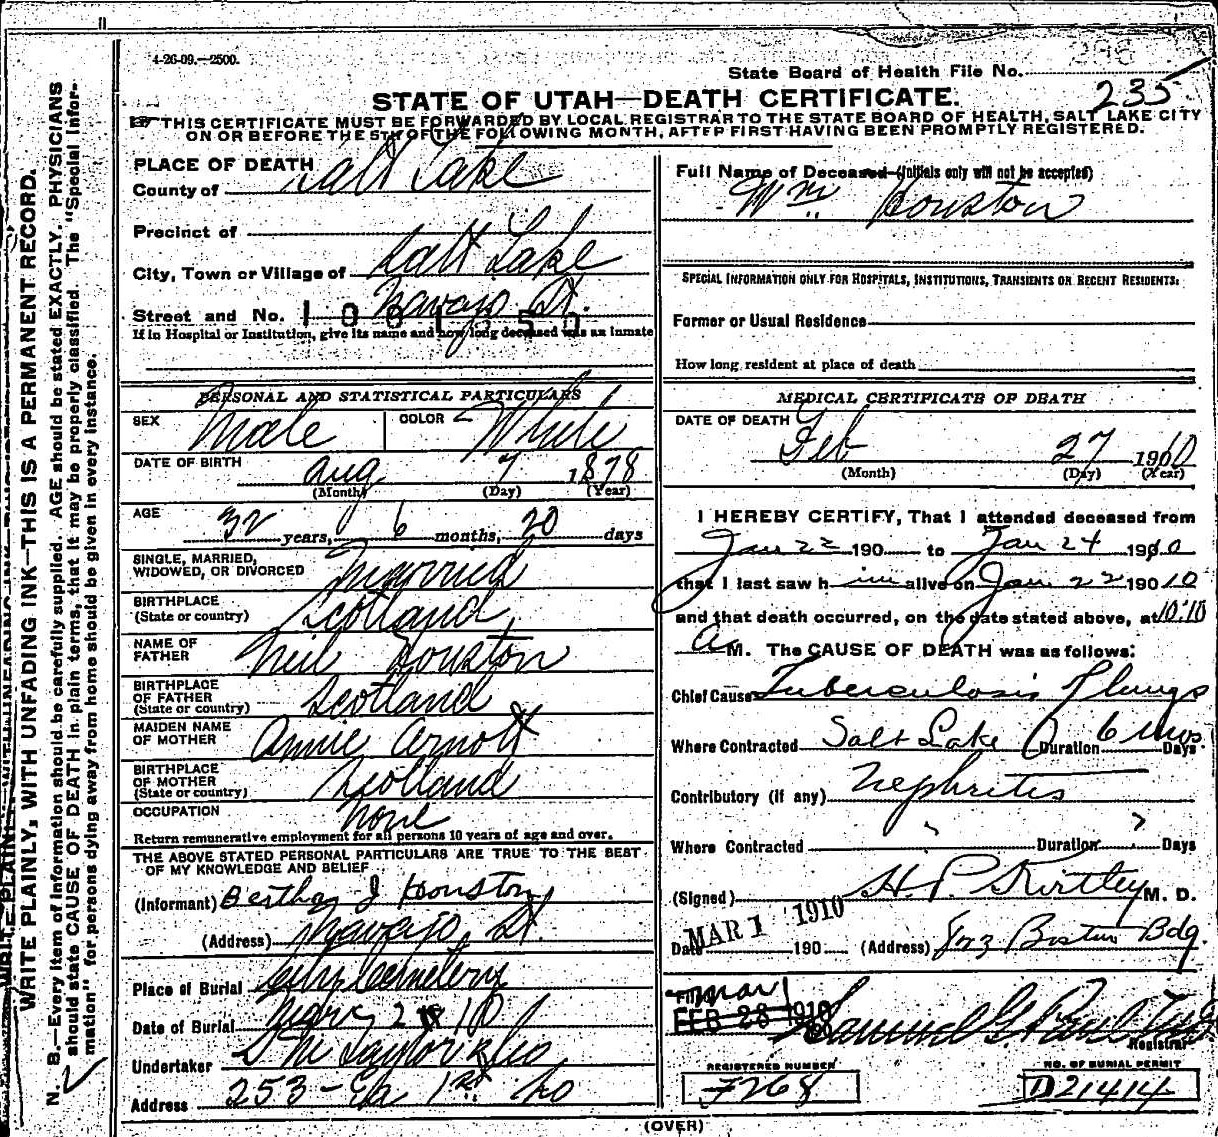 4-26-09.—2500.
State Board of Health File No.
235
STATE OF UTAH—DEATH CERTIFICATE.
THIS CERTIFICATE MUST BE FORWARDED BY LOCAL REGISTRAR TO THE STATE BOARD OF HEALTH, SALT LAKE CITY
ON OR BEFORE THE 5TH OF THE FOLLOWING MONTH, AFTER FIRST HAVING BEEN PROMPTLY REGISTERED.
WRITE PLAINLY, WITH UNFADING INK—THIS IS A PERMANENT RECORD.
N. B.—Every item of information should be carefully supplied. AGE should be stated EXACTLY. PHYSICIANS
should state CAUSE OF DEATH in plain terms, that it may be properly classified. The "Special Infor-
mation" for persons dying away from home should be given in every instance.
PLACE OF DEATH
County of Salt Lake
Precinct of
City, Town or Village of Salt Lake
Street and No. Navajo St.
If in Hospital or Institution, give its name and how long deceased was an inmate
PERSONAL AND STATISTICAL PARTICULARS
SEX Male COLOR White
DATE OF BIRTH Aug 7 1878
(Month) (Day) (Year)
AGE
32 years, 6 months, 20 days
SINGLE, MARRIED,
WIDOWED, OR DIVORCED Married
BIRTHPLACE
(State or country) Scotland
NAME OF
FATHER Neil Houston
BIRTHPLACE
OF FATHER
(State or country) Scotland
MAIDEN NAME
OF MOTHER Annie Arnott
BIRTHPLACE
OF MOTHER
(State or country) Scotland
OCCUPATION none
Return remunerative employment for all persons 10 years of age and over.
THE ABOVE STATED PERSONAL PARTICULARS ARE TRUE TO THE BEST
OF MY KNOWLEDGE AND BELIEF
(Informant) Bertha J Houston
(Address) Navajo St.
Place of Burial City Cemetery
Date of Burial 10
Undertaker S M Taylor & Co
Address 253 - Ea 1st So
Full Name of Deceased (Initials only will not be accepted)
Wm Houston
SPECIAL INFORMATION ONLY FOR HOSPITALS, INSTITUTIONS, TRANSIENTS OR RECENT RESIDENTS.
Former or Usual Residence
How long resident at place of death
MEDICAL CERTIFICATE OF DEATH
DATE OF DEATH
Feb 27 1910
(Month) (Day) (Year)
I HEREBY CERTIFY, That I attended deceased from
Jan 22 190 to Jan 24 1910
that I last saw him alive on Jan 22 190 10
and that death occurred, on the date stated above, at 10:10
A M. The CAUSE OF DEATH was as follows:
Chief Cause Tuberculosis of lungs
Where Contracted Salt Lake Duration 6 mos. Days
Contributory (if any) Nephritis
Where Contracted Duration ? Days
(Signed) H. P. Kirtley M. D.
Date MAR 1 1910 190 (Address) Boston Bdg.
Filed Mar 1
FEB 28 1910
Registrar
REGISTERED NUMBER
F268
NO. OF BURIAL PERMIT
D21414
(OVER)